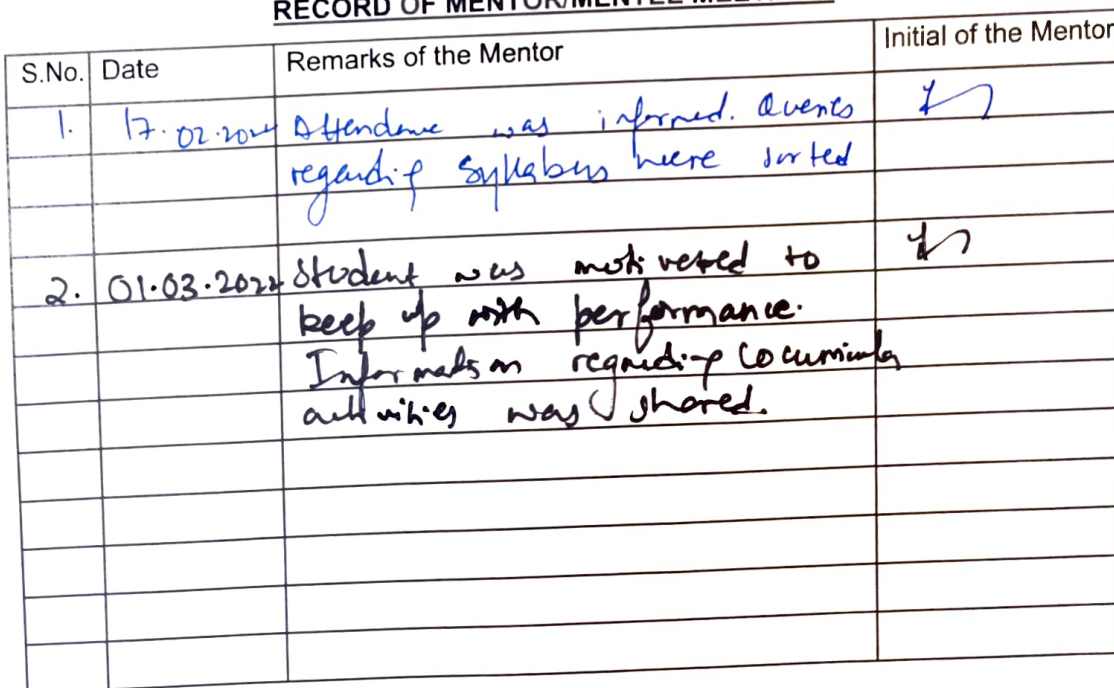 RECORD OF MENTOR/MENTEE
S.No. Date Remarks of the Mentor Initial of the Mentor
1. 17.02.2024 Attendance was informed. Queries
regarding Syllabus were sorted
2. 01.03.2024 Student was motivated to
keep up with performance.
Information regarding Cocurricular
activities was shared.